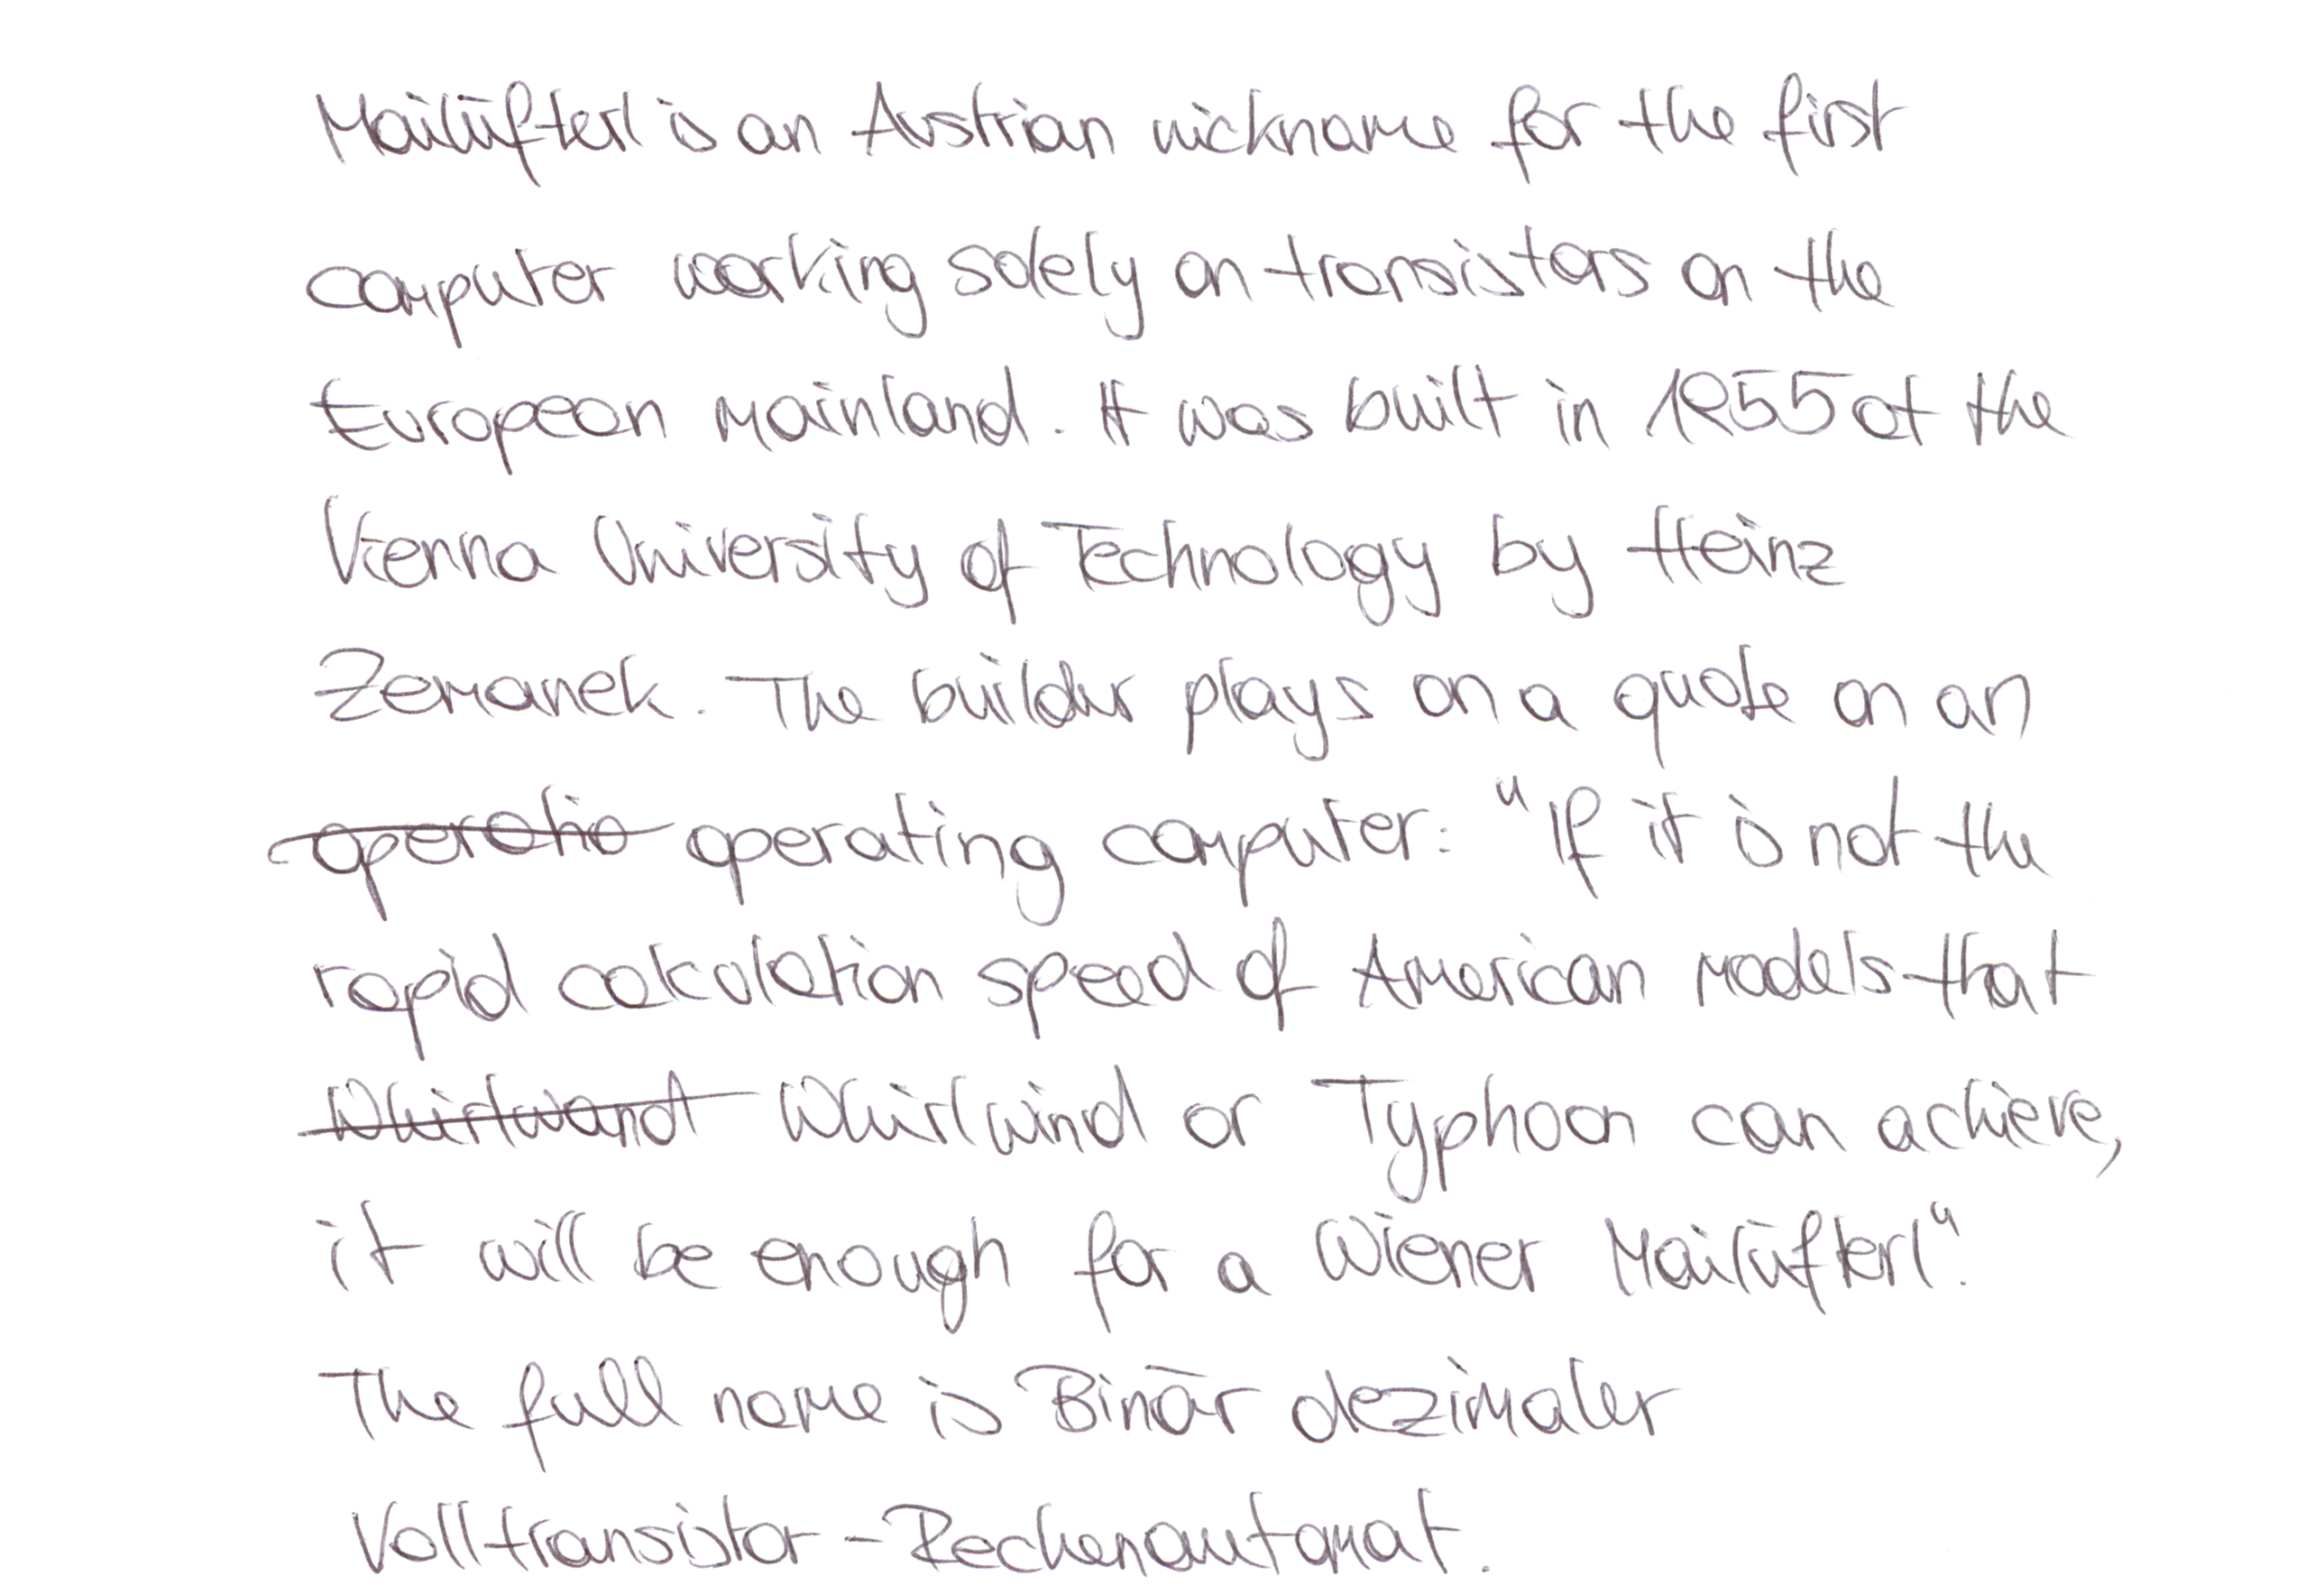 Mailüfterl is an Austrian nickname for the first
computer working solely on transistors on the
European mainland. It was built in 1955 at the
Vienna University of Technology by Heinz
Zemanek. The builder plays on a quote on an
operatio operating computer: "If it is not the
rapid calculation speed of American models that
Whirlwand Whirlwind or Typhoon can achieve,
it will be enough for a Wiener Mailüfterl".
The full name is Binär dezimaler
Volltransistor-Rechenautomat.